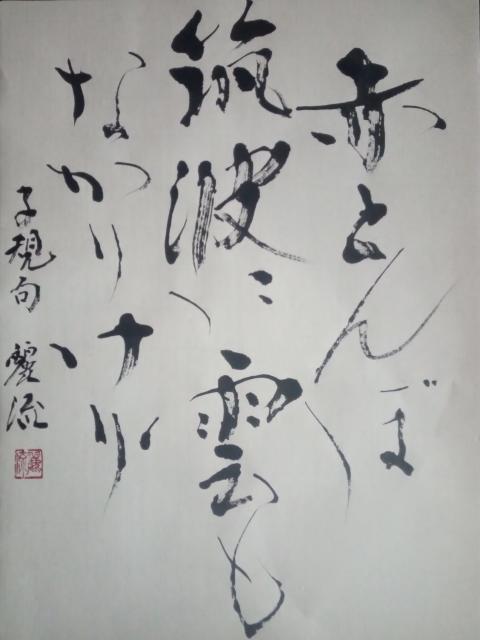 赤とんぼ
筑波に雲も
なかりけり
子規句 流